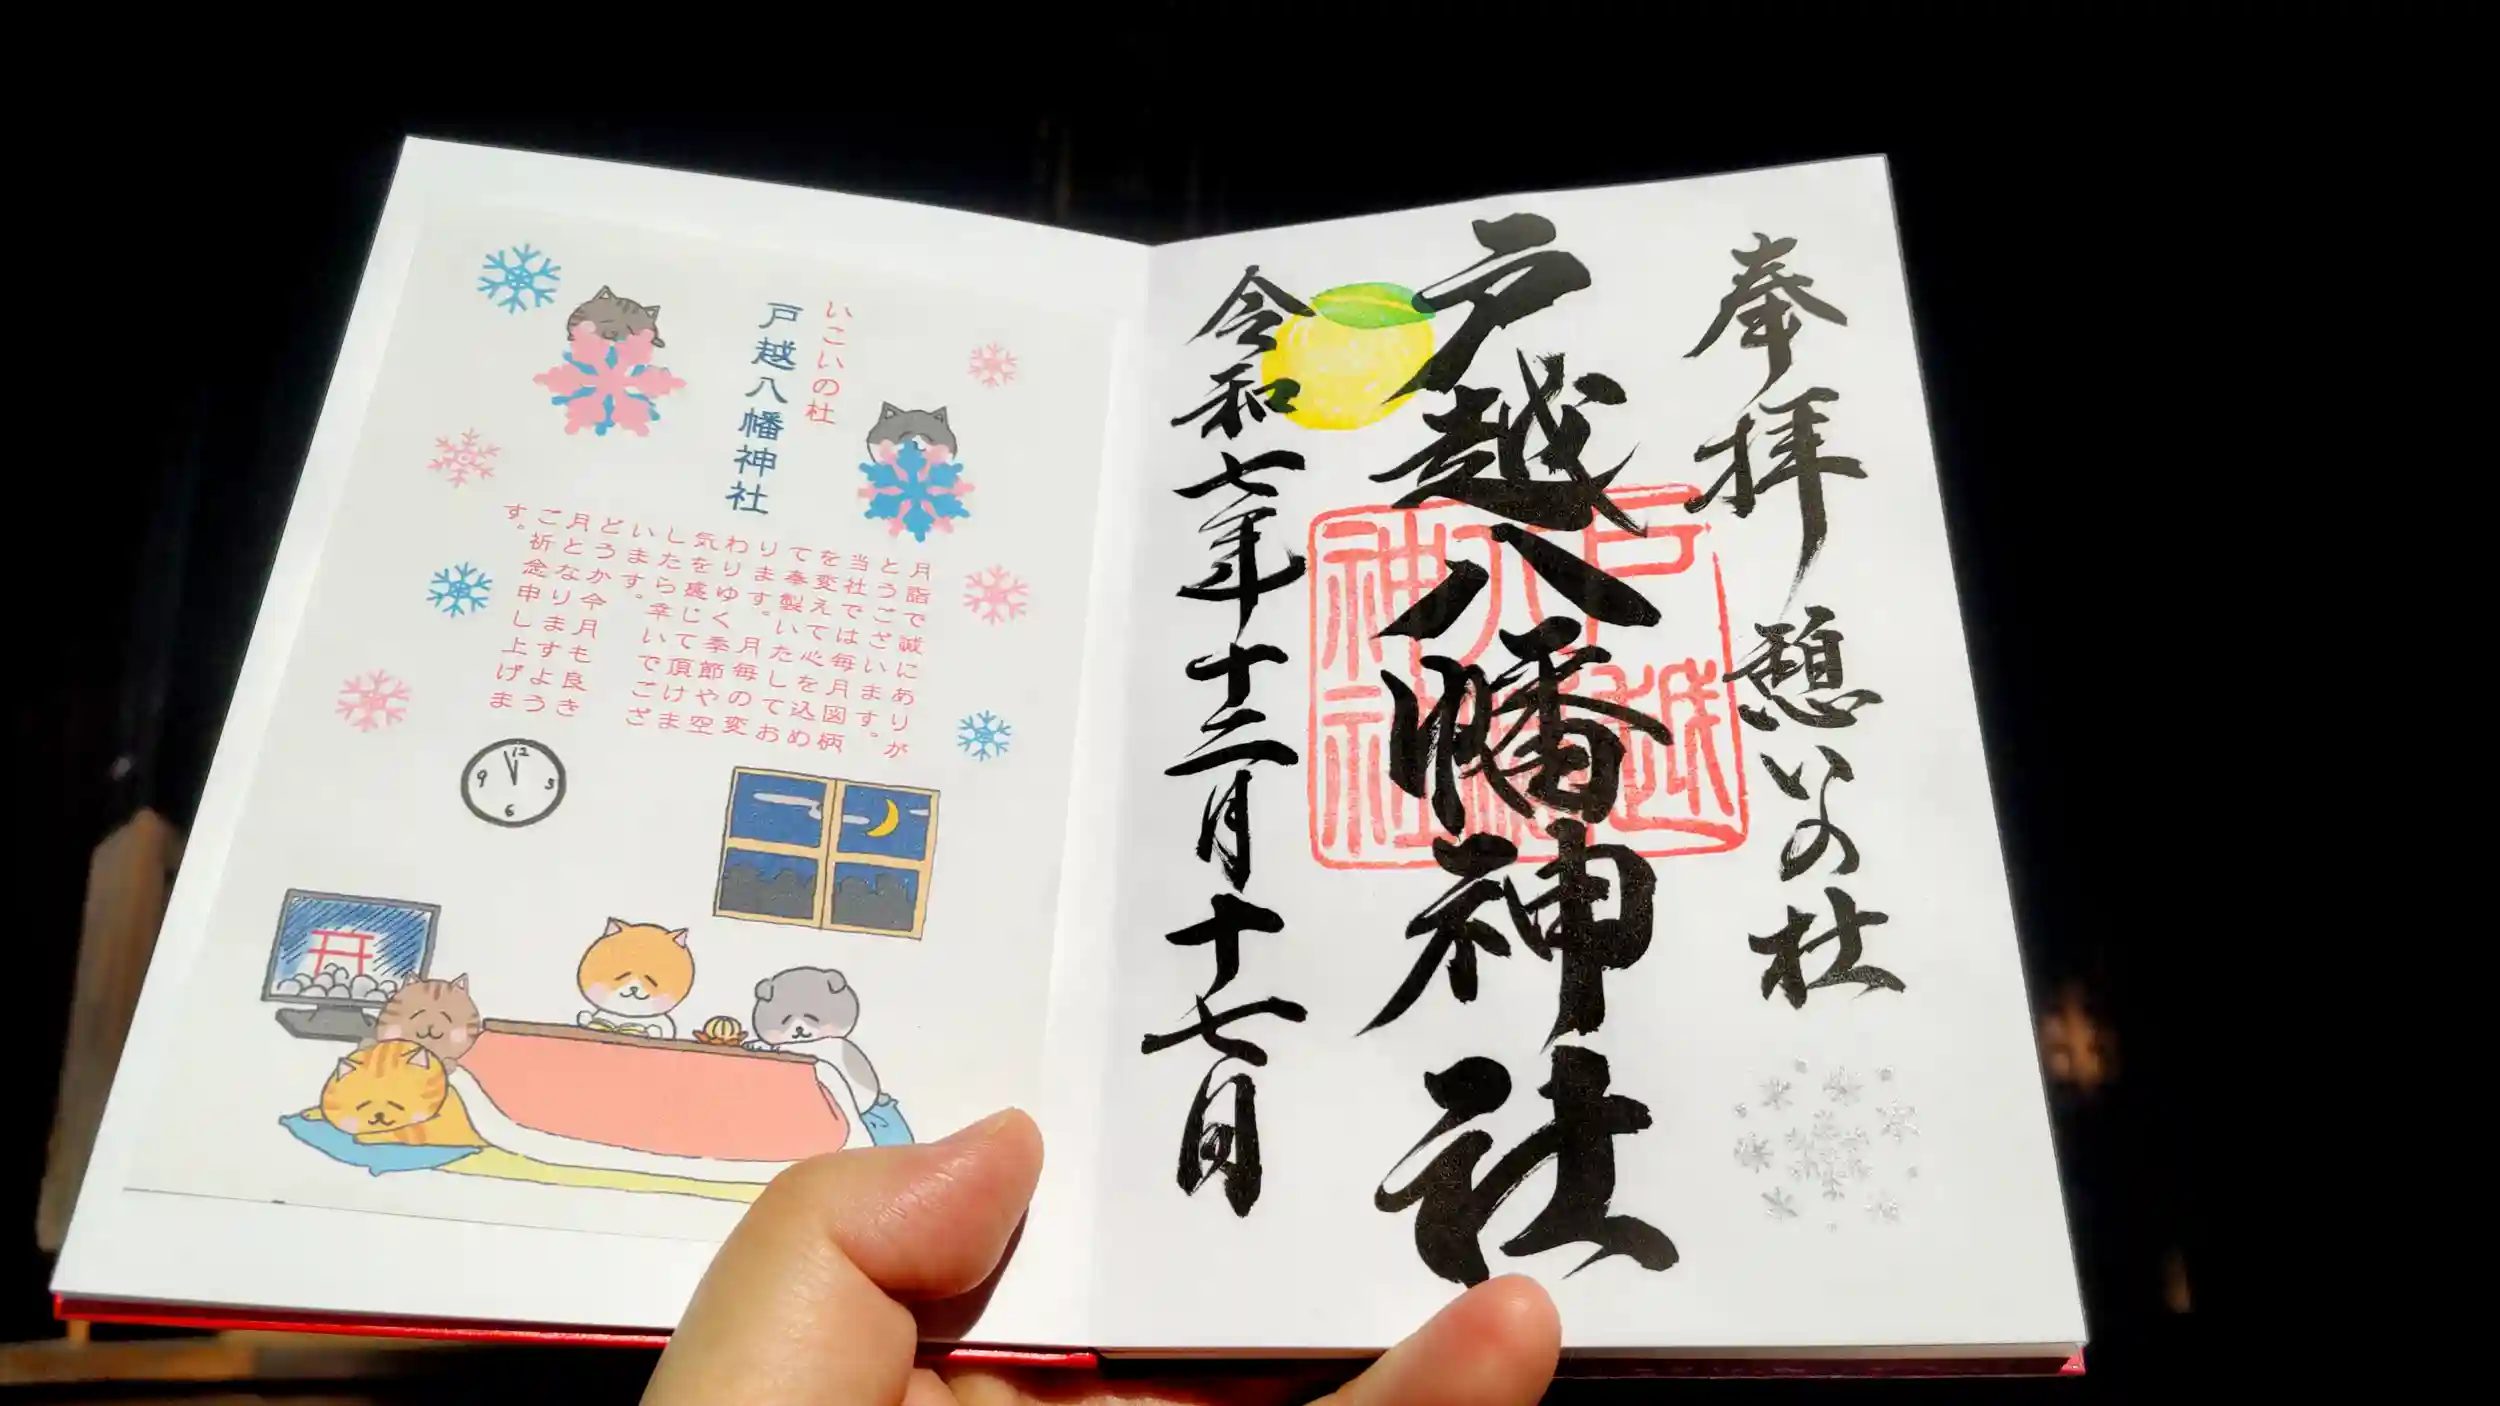 奉拝 憩いの杜
戸越八幡神社
戸越八幡神社
令和七年十二月十七日
いこいの杜
戸越八幡神社
月詣で誠にありが
とうございます。
当社では毎月図柄
を変えて心を込め
て奉製いたしてお
ります。月毎の変
わりゆく季節や空
気を感じて頂けま
したら幸いでござ
います。
どうか今月も良き
月となりますよう
ご祈念申し上げま
す。
12
9 3
6